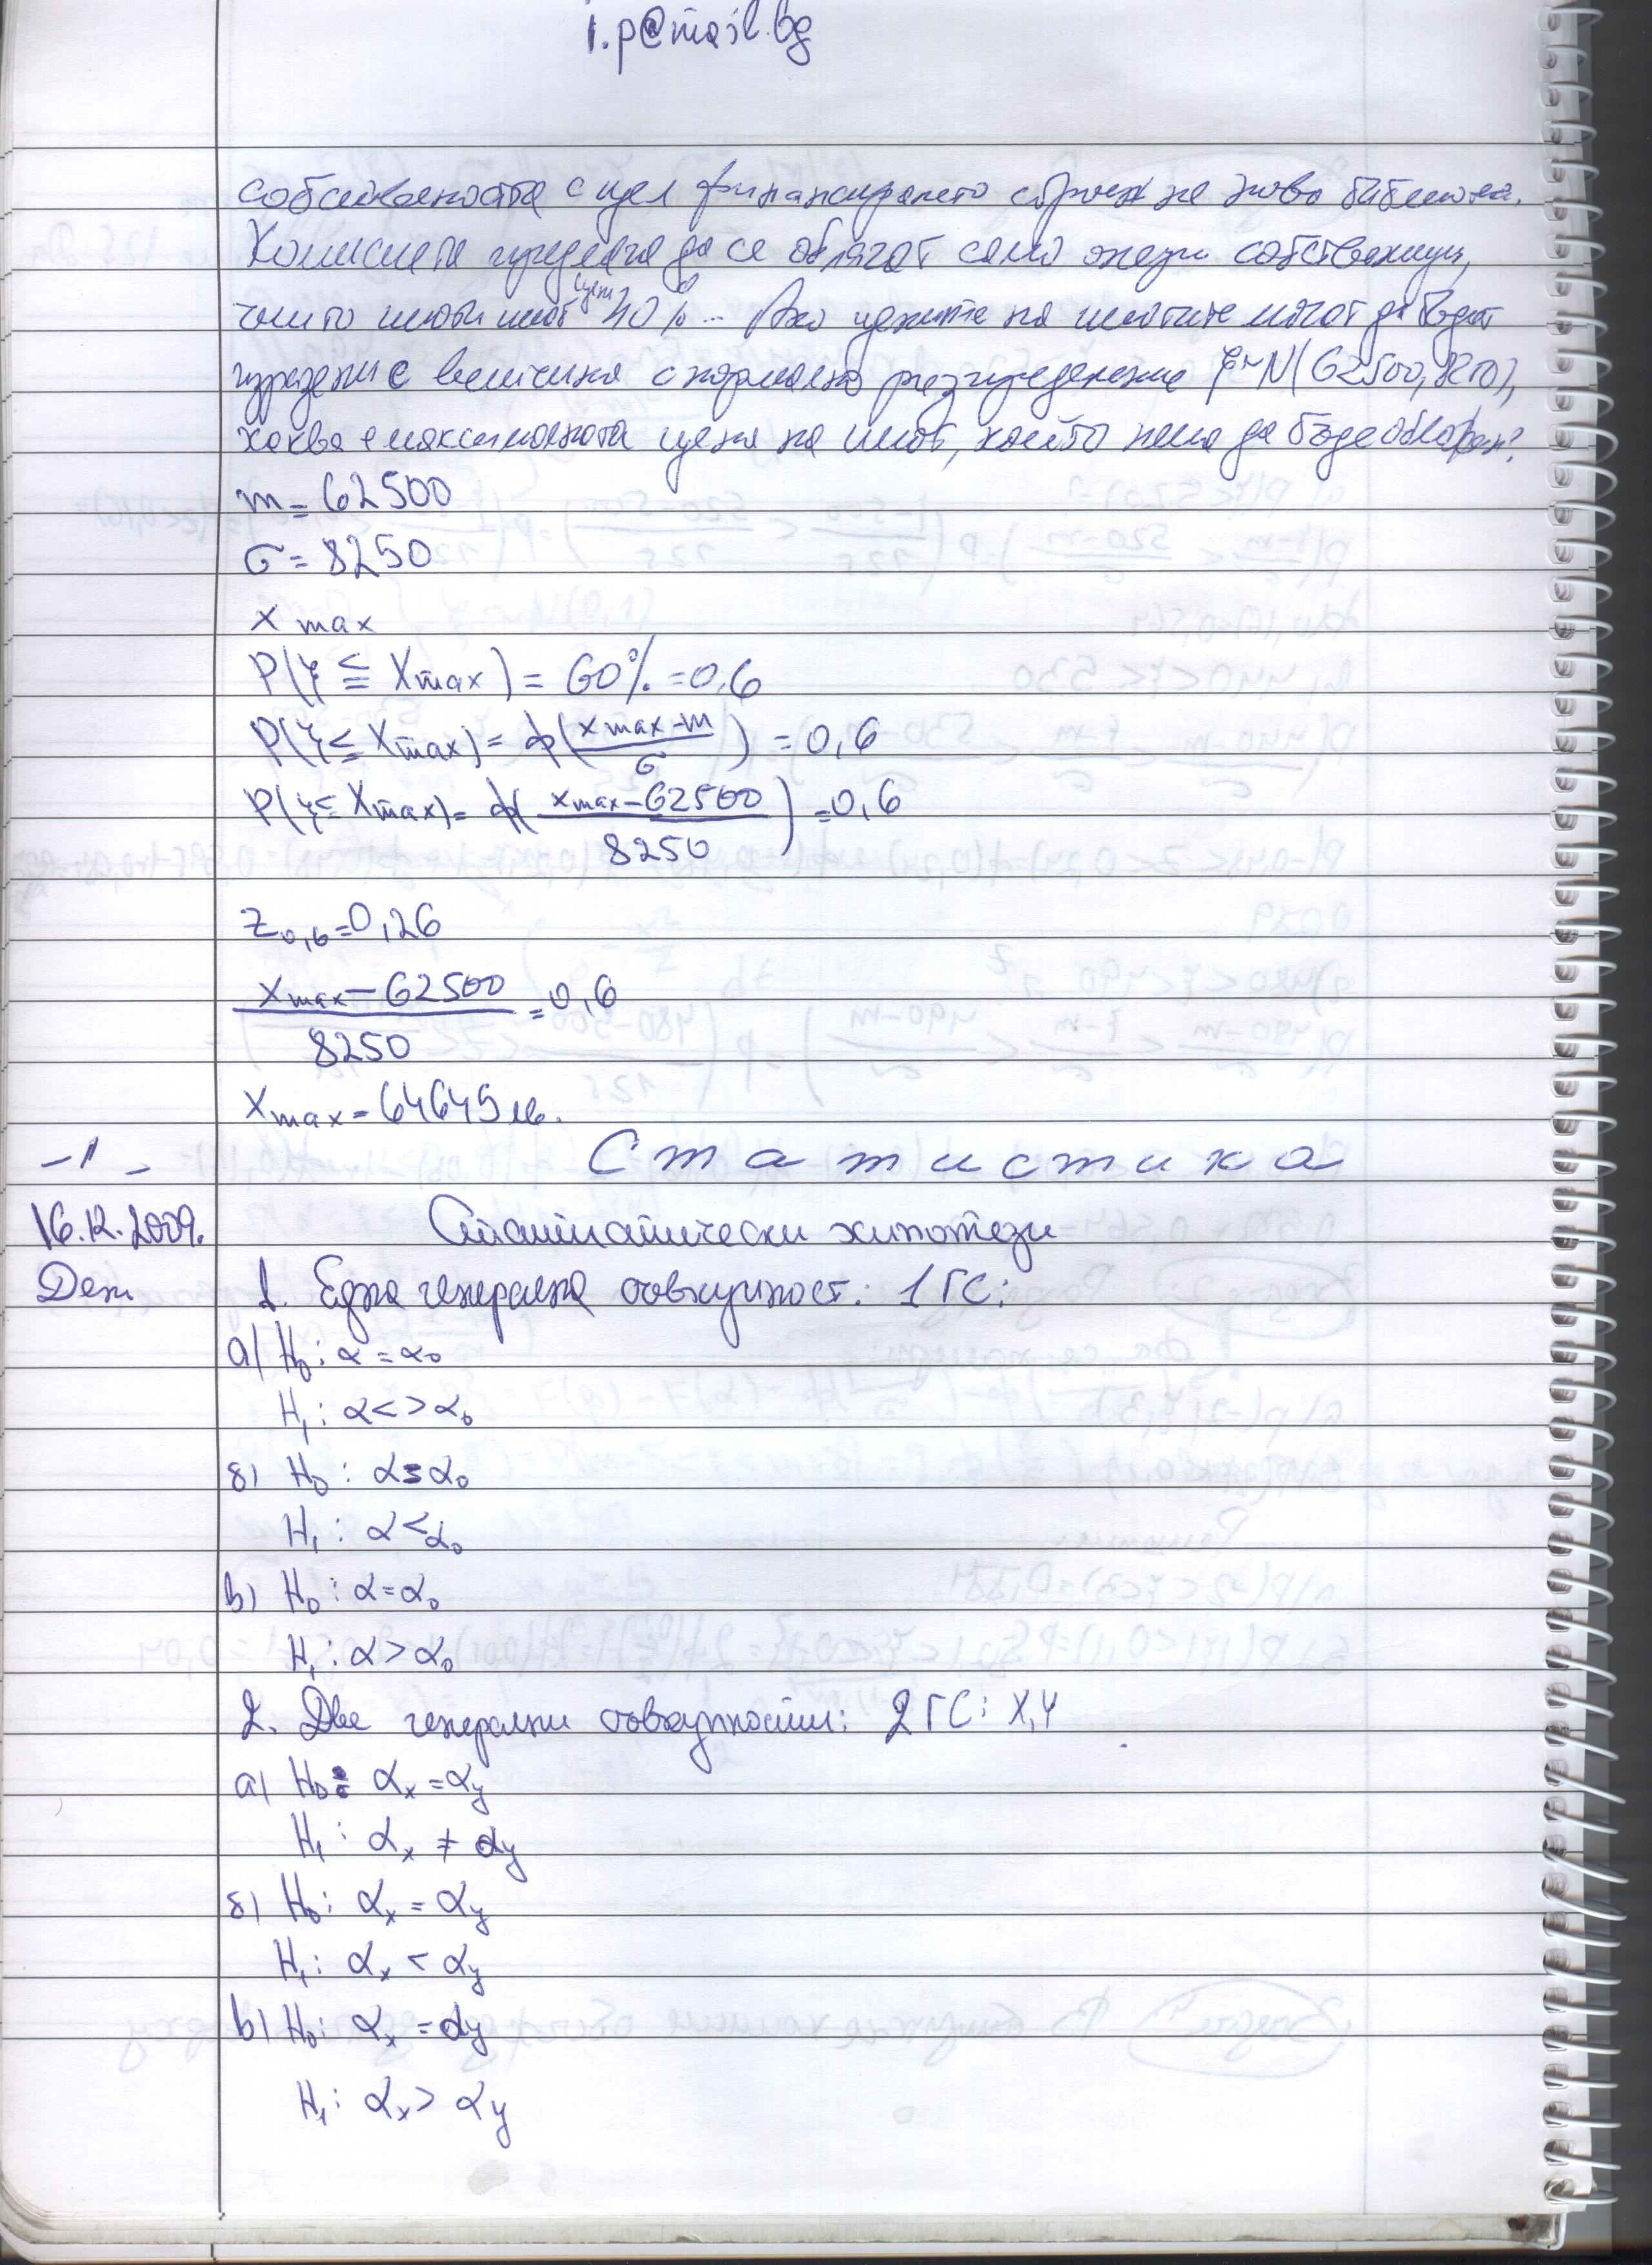 i.p@mail.bg
собствеността с цел финансирането строеж на нова библиотека.
Комисията предлага да се облагат само онези собственици,
чиито имоти имат цени 40% .. Ако цените на имотите могат да бъдат
изразени с величина с нормално разпределение ξ~N(62500, 8250),
каква е максималната цена на имот, който няма да бъде облаган?
m = 62500
σ = 8250
x max
P(ξ ≤ Xmax) = 60% = 0,6
P(ξ ≤ Xmax) = ф(xmax-m / σ) = 0,6
P(ξ ≤ Xmax) = ф(xmax-62500 / 8250) = 0,6
z0,6 = 0,26
xmax - 62500 / 8250 = 0,6
xmax = 64645 лв.
- 1 - Статистика
16.12.2009. Статистически хипотези
Ден 1. Една генерална съвкупност: 1 ГС:
а) H0 : α = α0
H1 : α < > α0
б) H0 : α = α0
H1 : α < α0
в) H0 : α = α0
H1 : α > α0
2. Две генерални съвкупности: 2 ГС: X, Y
а) H0 : αx = αy
H1 : αx ≠ αy
б) H0 : αx = αy
H1 : αx < αy
в) H0 : αx = αy
H1 : αx > αy